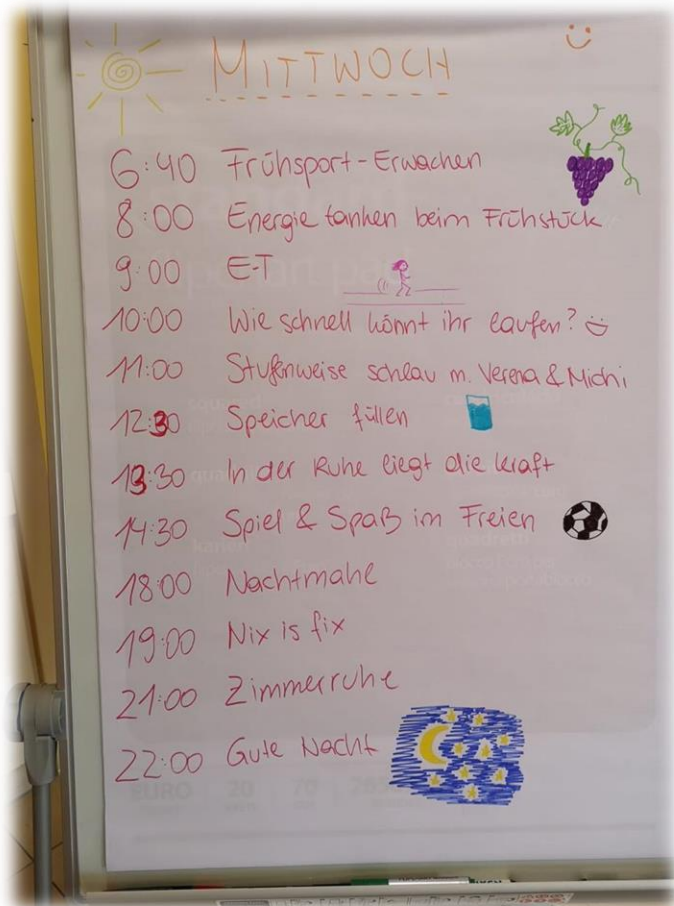 MITTWOCH
6:40 Frühsport-Erwachen
8:00 Energie tanken beim Frühstück
9:00 E-T
10:00 Wie schnell könnt ihr laufen?
11:00 Stufenweise schlau m. Verena & Michi
12:30 Speicher füllen
13:30 In der Ruhe liegt die Kraft
14:30 Spiel & Spaß im Freien
18:00 Nachtmahl
19:00 Nix is fix
21:00 Zimmerruhe
22:00 Gute Nacht
EURO 20 70